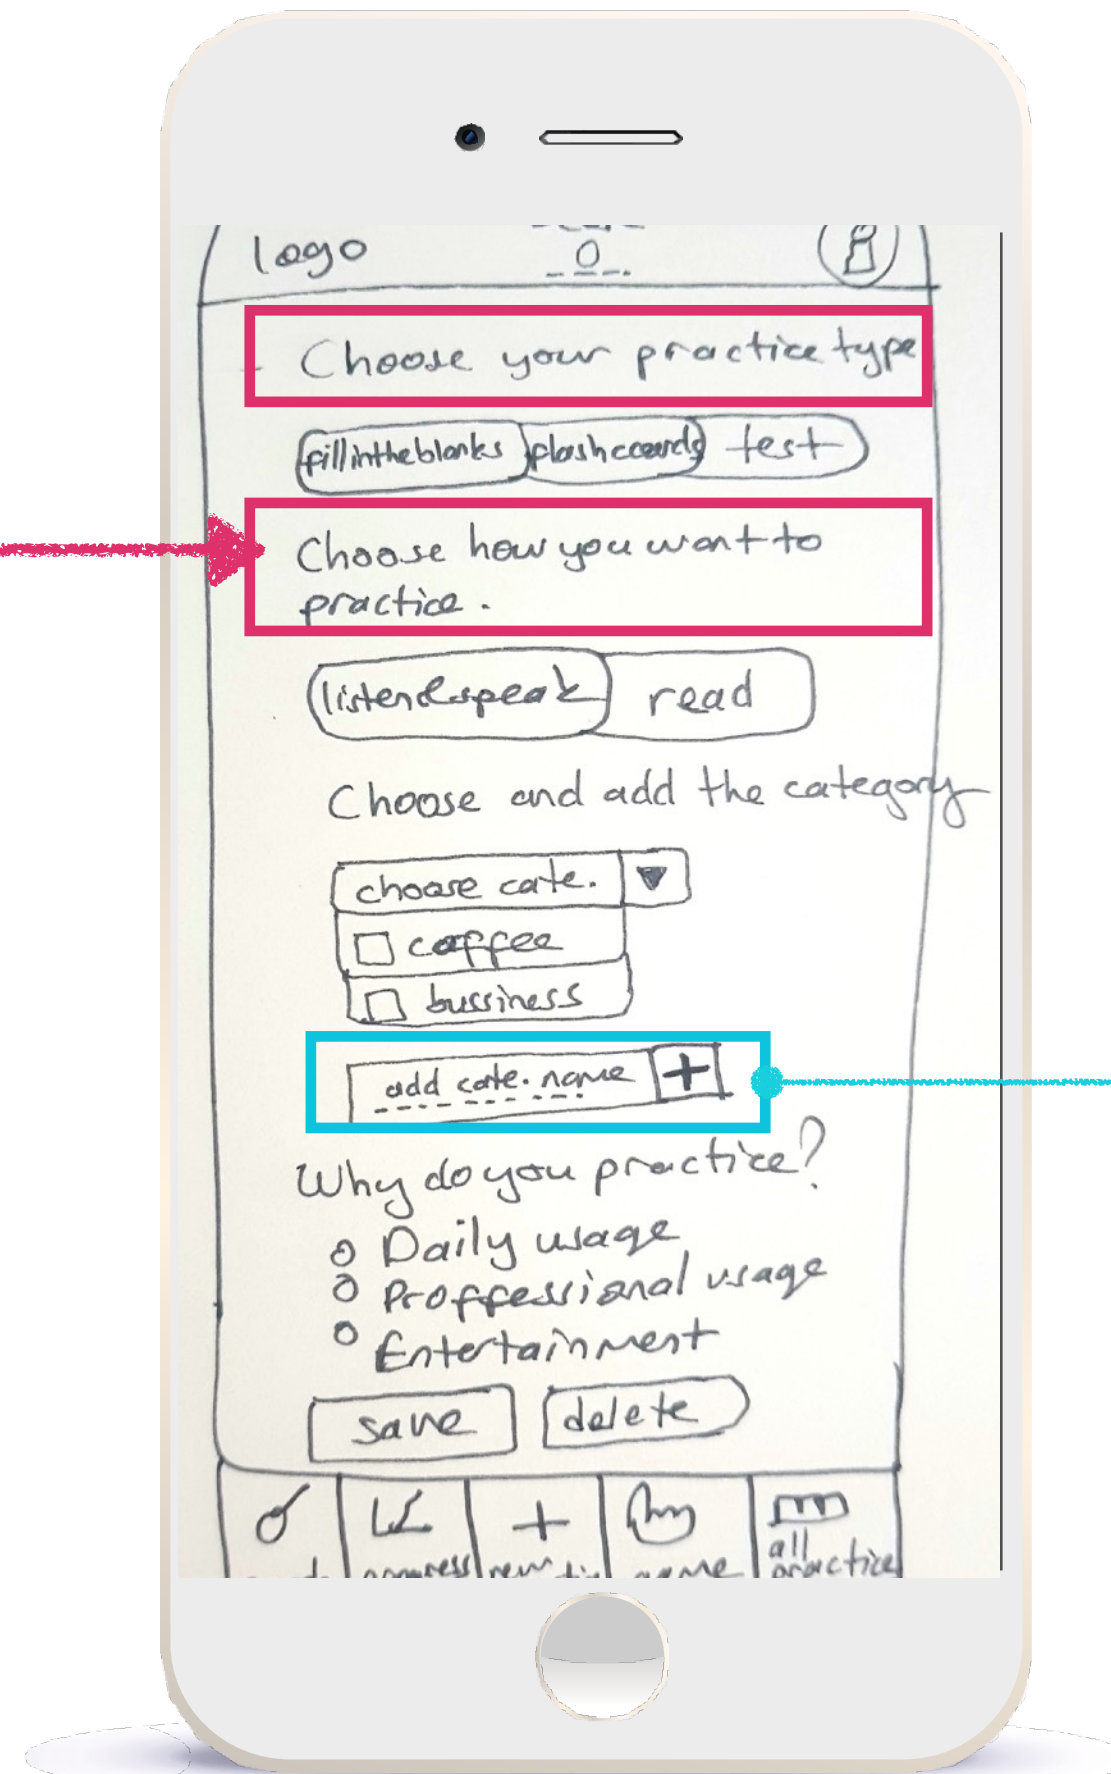 logo
0
Choose your practice type
fill in the blanks flashcards test
Choose how you want to
practice.
listen&speak read
Choose and add the category
choose cate.
coffee
bussiness
add cate. name +
Why do you practice?
Daily usage
Proffessional usage
Entertainment
save delete
+
progress new game all
practice